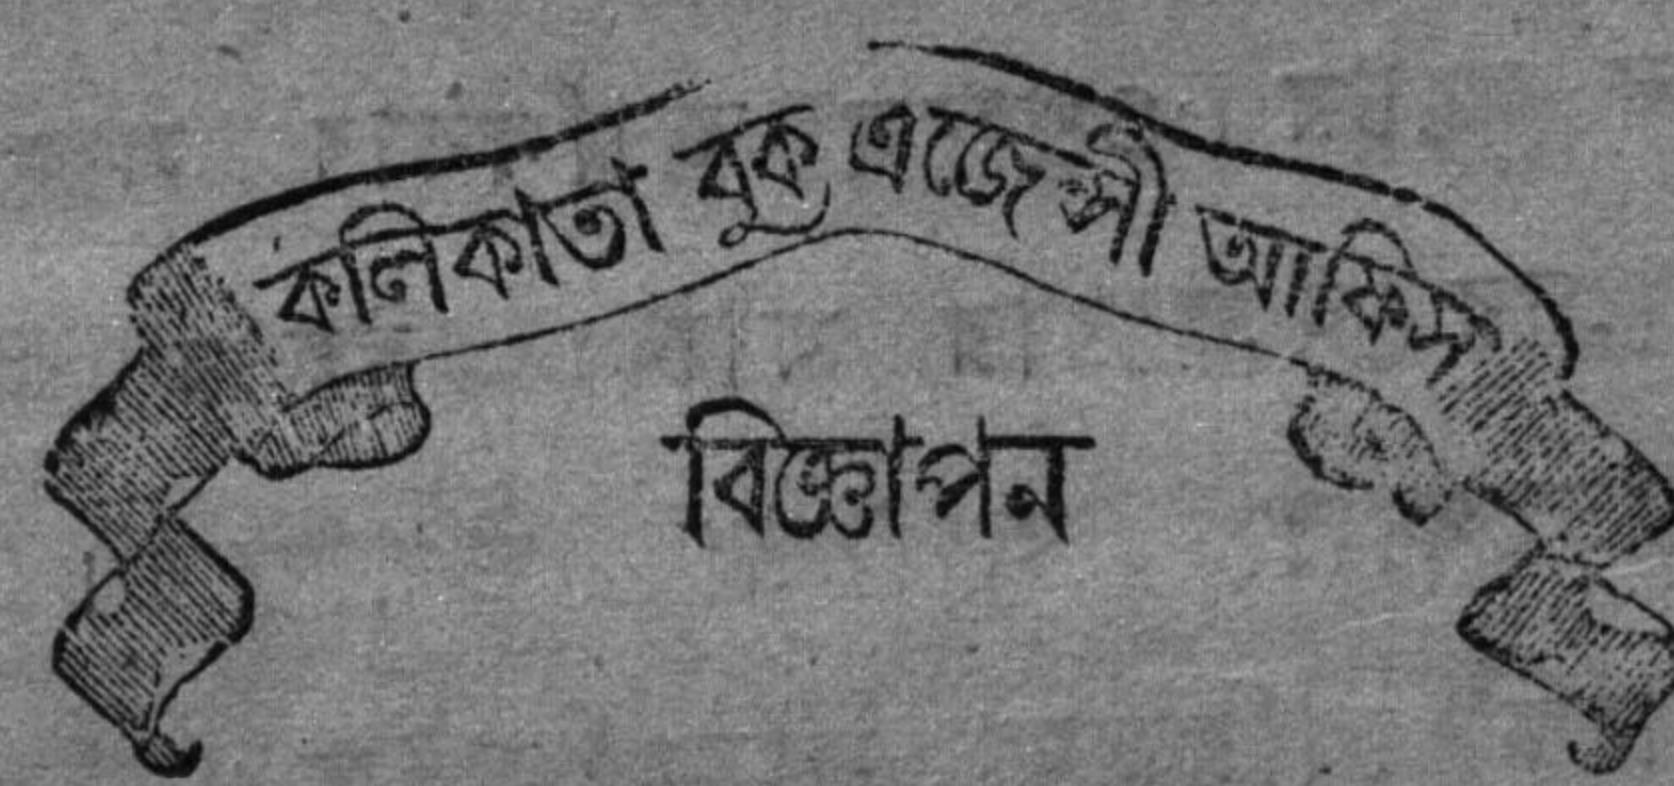 কলিকাতা বুক এজেন্সী আফিস
বিজ্ঞাপন